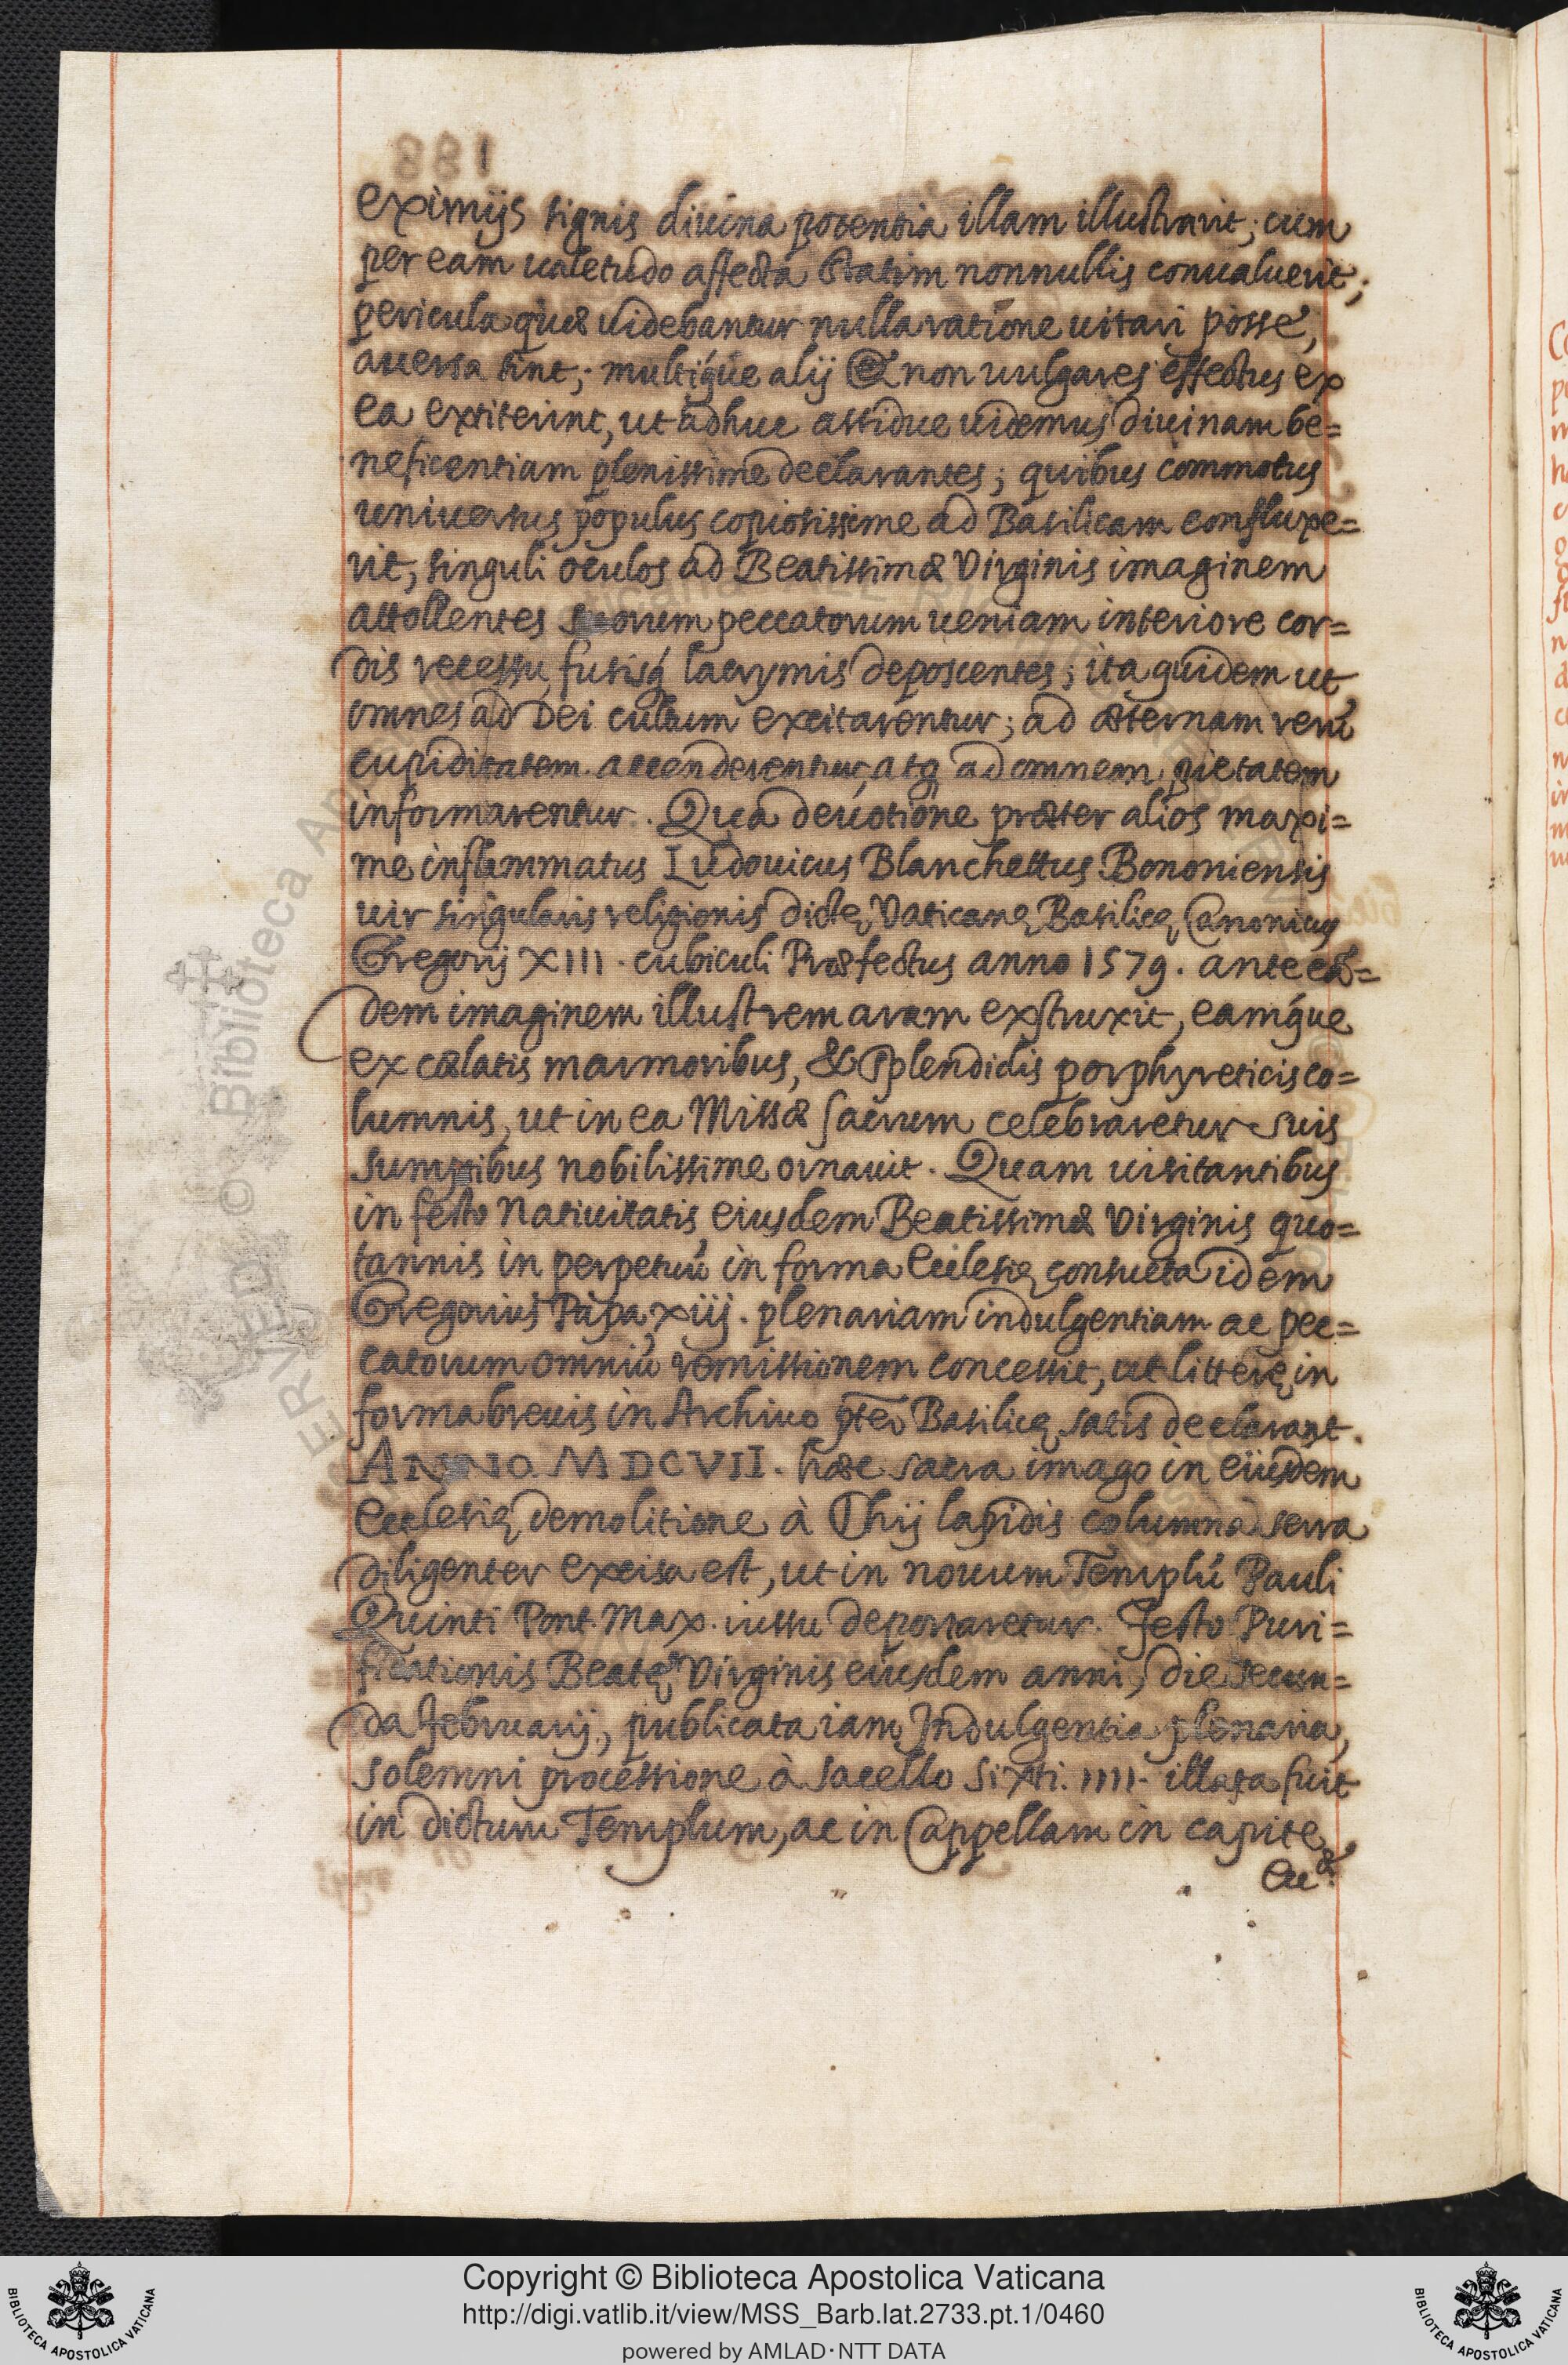 eximijs signis diuina potentia illam illustrarit; cum
per eam ualetudo affecta statim nonnullis conualuerit;
pericula quæ uidebantur nulla ratione uitari posse,
auersa sint; multiq́ue alij & non uulgares effectus ex
ea extiterint, ut adhuc assidue uidemus diuinam be=
neficentiam plenissime declarantes; quibus commotus
uniuersus populus copiosissime ad Basilicam confluxe=
rit, singuli oculos ad Beatissimæ Virginis imaginem
attollentes suorum peccatorum ueniam interiore cor=
dis recessu, fusisq́ lacrymis deposcentes; ita quidem ut
omnes ad Dei cultum excitarentur; ad æternam rerū
cupiditatem accenderentur, atq ad omnem pietatem
informarentur. Qua deuotione præter alios maxi=
me inflammatus Ludouicus Blanchettus Bononiensis
uir singularis religionis dictę Vaticanę Basilicę Canonicus
Gregorij XIII. cubiculi Præfectus anno 1579. ante ean=
dem imaginem illustrem aram exstruxit, eamq́ue
ex cælatis marmoribus, & splendidis porphyreticis co=
lumnis, ut in ea Missæ sacrum celebraretur suis
sumptibus nobilissime ornauit. Quam uisitantibus
in festo Natiuitatis eiusdem Beatissimæ Virginis quo=
tannis in perpetuū in forma Ecclesię consueta idem
Gregorius Papa xiij. plenariam indulgentiam ac pec=
catorum omniū remissionem concessit, ut litterę in
forma breuis in Archiuo Basilicę satis declarant.
ANNO MDCVII. hæc sacra imago in eiusdem
Ecclesię demolitione à Chij lapidis columna serra
diligenter excisa est, ut in nouum Templū Pauli
Quinti Pont. Max. iussu deportaretur. Festo Puri=
ficationis Beatę Virginis eiusdem anni, die secun=
da Februarij, publicata iam Indulgentia plenaria,
solemni processione à sacello Sixti. IIII. illata fuit
in dictum Templum, ac in Cappellam in capite
Copyright © Biblioteca Apostolica Vaticana
http://digi.vatlib.it/view/MSS_Barb.lat.2733.pt.1/0460
powered by AMLAD·NTT DATA
BIBLIOTECA APOSTOLICA VATICANA
BIBLIOTECA APOSTOLICA VATICANA